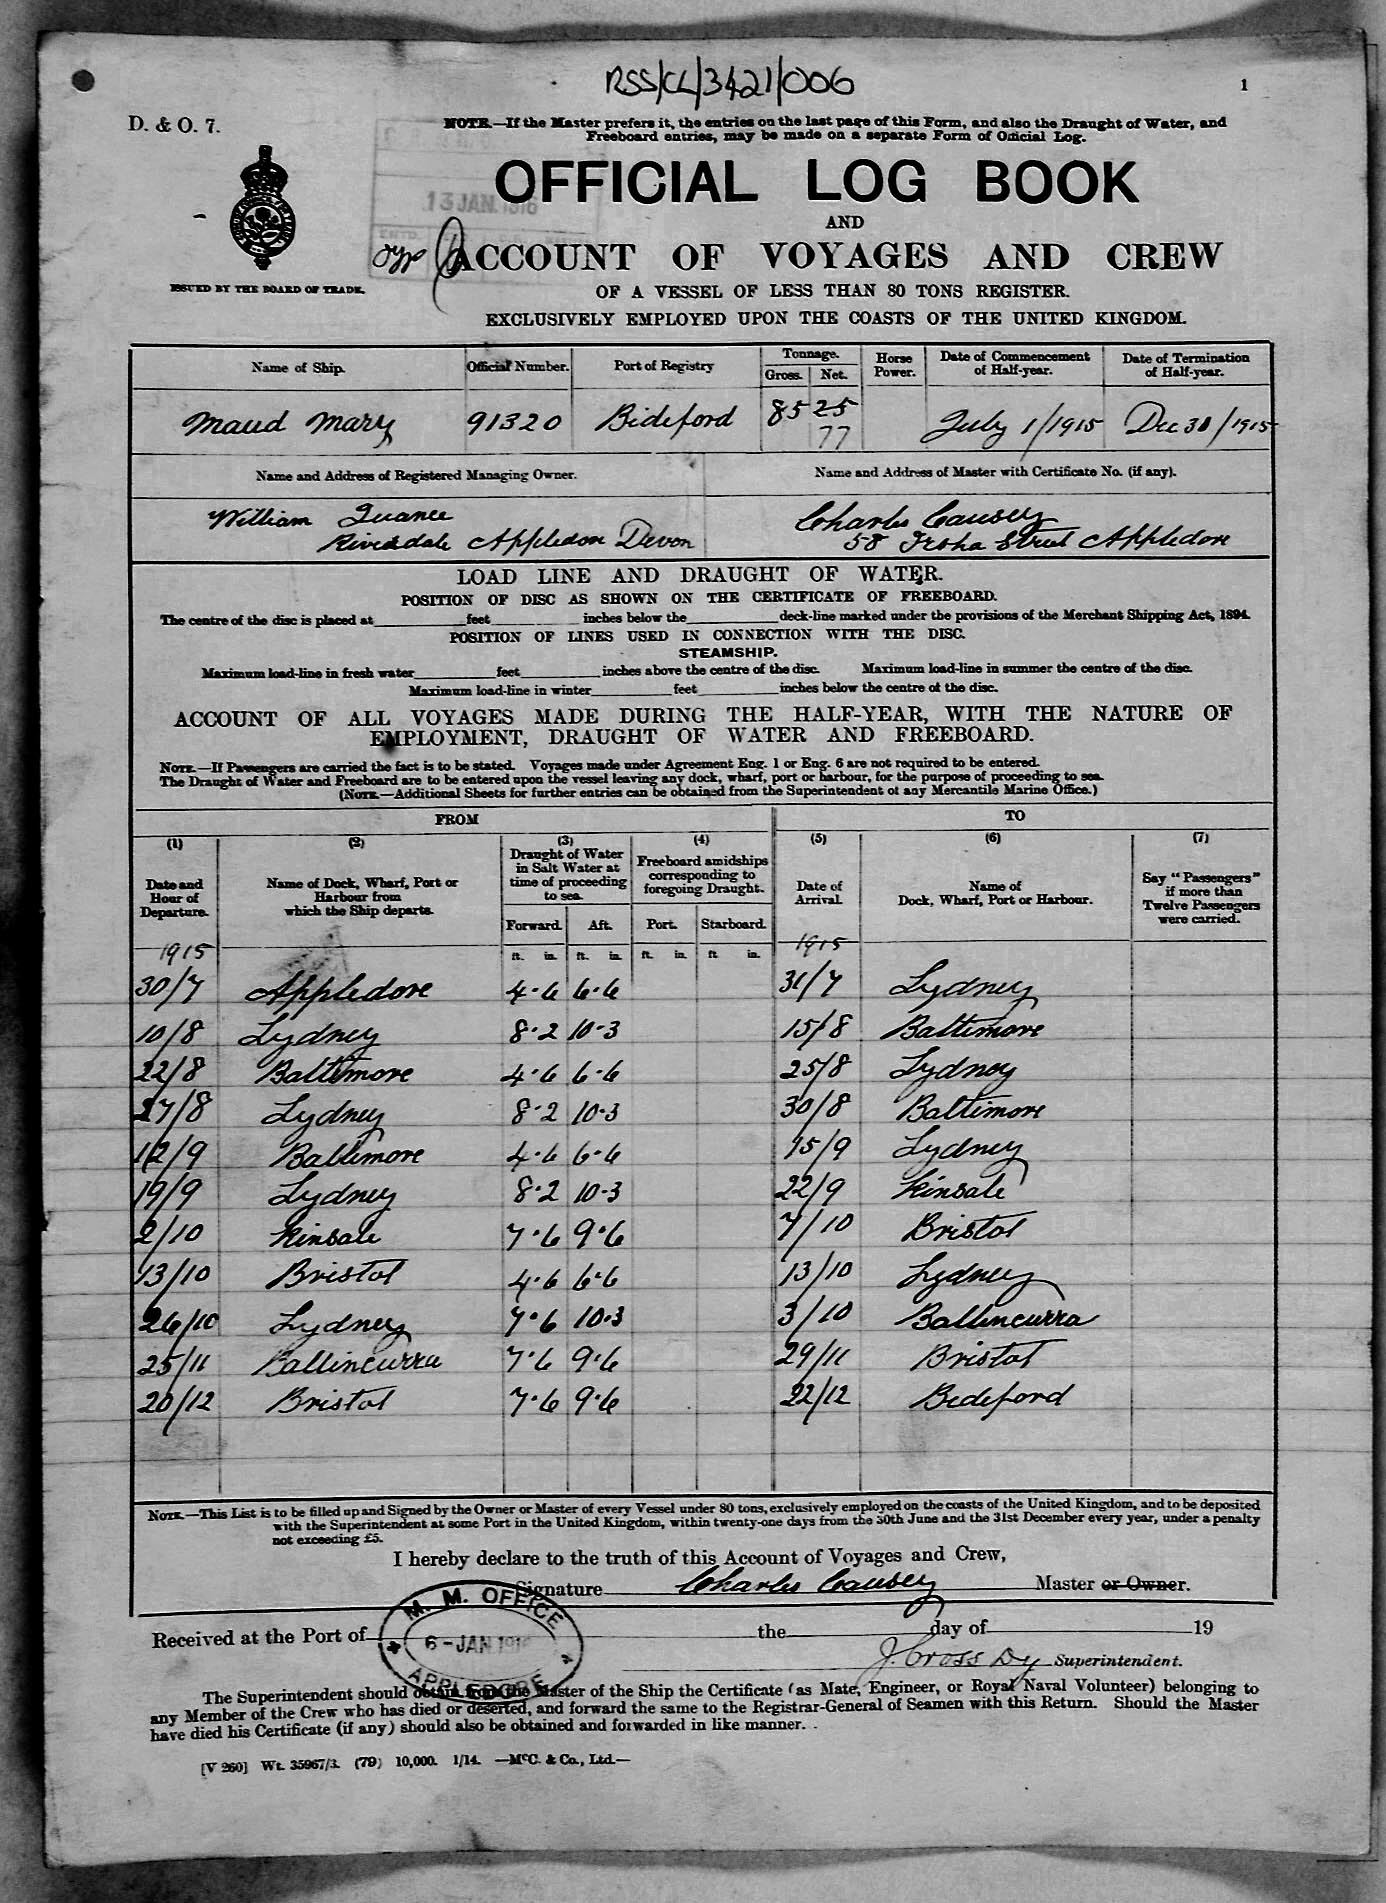 RSS/CL/3421/006
1
D. & O. 7.
NOTE.—If the Master prefers it, the entries on the last page of this Form, and also the Draught of Water, and
Freeboard entries, may be made on a separate Form of Official Log.
OFFICIAL LOG BOOK
13 JAN. 1916
AND
ACCOUNT OF VOYAGES AND CREW
ISSUED BY THE BOARD OF TRADE.
OF A VESSEL OF LESS THAN 80 TONS REGISTER.
EXCLUSIVELY EMPLOYED UPON THE COASTS OF THE UNITED KINGDOM.
Name of Ship. Official Number. Port of Registry Tonnage. Gross. Net. Horse Power. Date of Commencement of Half-year. Date of Termination of Half-year.
Maud Mary 91320 Bideford 85 25 July 1/1915 Dec 31/1915
77
Name and Address of Registered Managing Owner. Name and Address of Master with Certificate No. (if any).
William Quance Charles Causey
Riversdale Appledore Devon 58 Irsha Street Appledore
LOAD LINE AND DRAUGHT OF WATER.
POSITION OF DISC AS SHOWN ON THE CERTIFICATE OF FREEBOARD.
The centre of the disc is placed at feet inches below the deck-line marked under the provisions of the Merchant Shipping Act, 1894.
POSITION OF LINES USED IN CONNECTION WITH THE DISC.
STEAMSHIP.
Maximum load-line in fresh water feet inches above the centre of the disc. Maximum load-line in summer the centre of the disc.
Maximum load-line in winter feet inches below the centre of the disc.
ACCOUNT OF ALL VOYAGES MADE DURING THE HALF-YEAR, WITH THE NATURE OF
EMPLOYMENT, DRAUGHT OF WATER AND FREEBOARD.
NOTE.—If Passengers are carried the fact is to be stated. Voyages made under Agreement Eng. 1 or Eng. 6 are not required to be entered.
The Draught of Water and Freeboard are to be entered upon the vessel leaving any dock, wharf, port or harbour, for the purpose of proceeding to sea.
(NOTE.—Additional Sheets for further entries can be obtained from the Superintendent of any Mercantile Marine Office.)
FROM TO
(1) (2) (3) (4) (5) (6) (7)
Date and Hour of Departure. Name of Dock, Wharf, Port or Harbour from which the Ship departs. Draught of Water in Salt Water at time of proceeding to sea. Freeboard amidships corresponding to foregoing Draught. Date of Arrival. Name of Dock, Wharf, Port or Harbour. Say "Passengers" if more than Twelve Passengers were carried.
Forward. Aft. Port. Starboard.
1915 ft. in. ft. in. ft. in. ft in. 1915
30/7 Appledore 4·6 6·6 31/7 Lydney
10/8 Lydney 8·2 10·3 15/8 Baltimore
22/8 Baltimore 4·6 6·6 25/8 Lydney
27/8 Lydney 8·2 10·3 30/8 Baltimore
12/9 Baltimore 4·6 6·6 15/9 Lydney
19/9 Lydney 8·2 10·3 22/9 Kinsale
2/10 Kinsale 7·6 9·6 7/10 Bristol
13/10 Bristol 4·6 6·6 13/10 Lydney
26/10 Lydney 7·6 10·3 3/10 Ballincurra
25/11 Ballincurra 7·6 9·6 29/11 Bristol
20/12 Bristol 7·6 9·6 22/12 Bideford
NOTE.—This List is to be filled up and Signed by the Owner or Master of every Vessel under 80 tons, exclusively employed on the coasts of the United Kingdom, and to be deposited
with the Superintendent at some Port in the United Kingdom, within twenty-one days from the 30th June and the 31st December every year, under a penalty
not exceeding £5.
I hereby declare to the truth of this Account of Voyages and Crew,
Signature Charles Causey Master or Owner.
M. M. OFFICE
6-JAN 1916
APPLEDORE
Received at the Port of the day of 19
J. Cross Dy Superintendent.
The Superintendent should obtain from the Master of the Ship the Certificate (as Mate, Engineer, or Royal Naval Volunteer) belonging to
any Member of the Crew who has died or deserted, and forward the same to the Registrar-General of Seamen with this Return. Should the Master
have died his Certificate (if any) should also be obtained and forwarded in like manner.
[V 260] Wt. 35967/3. (79) 10,000. 1/14. —McC. & Co., Ltd.—